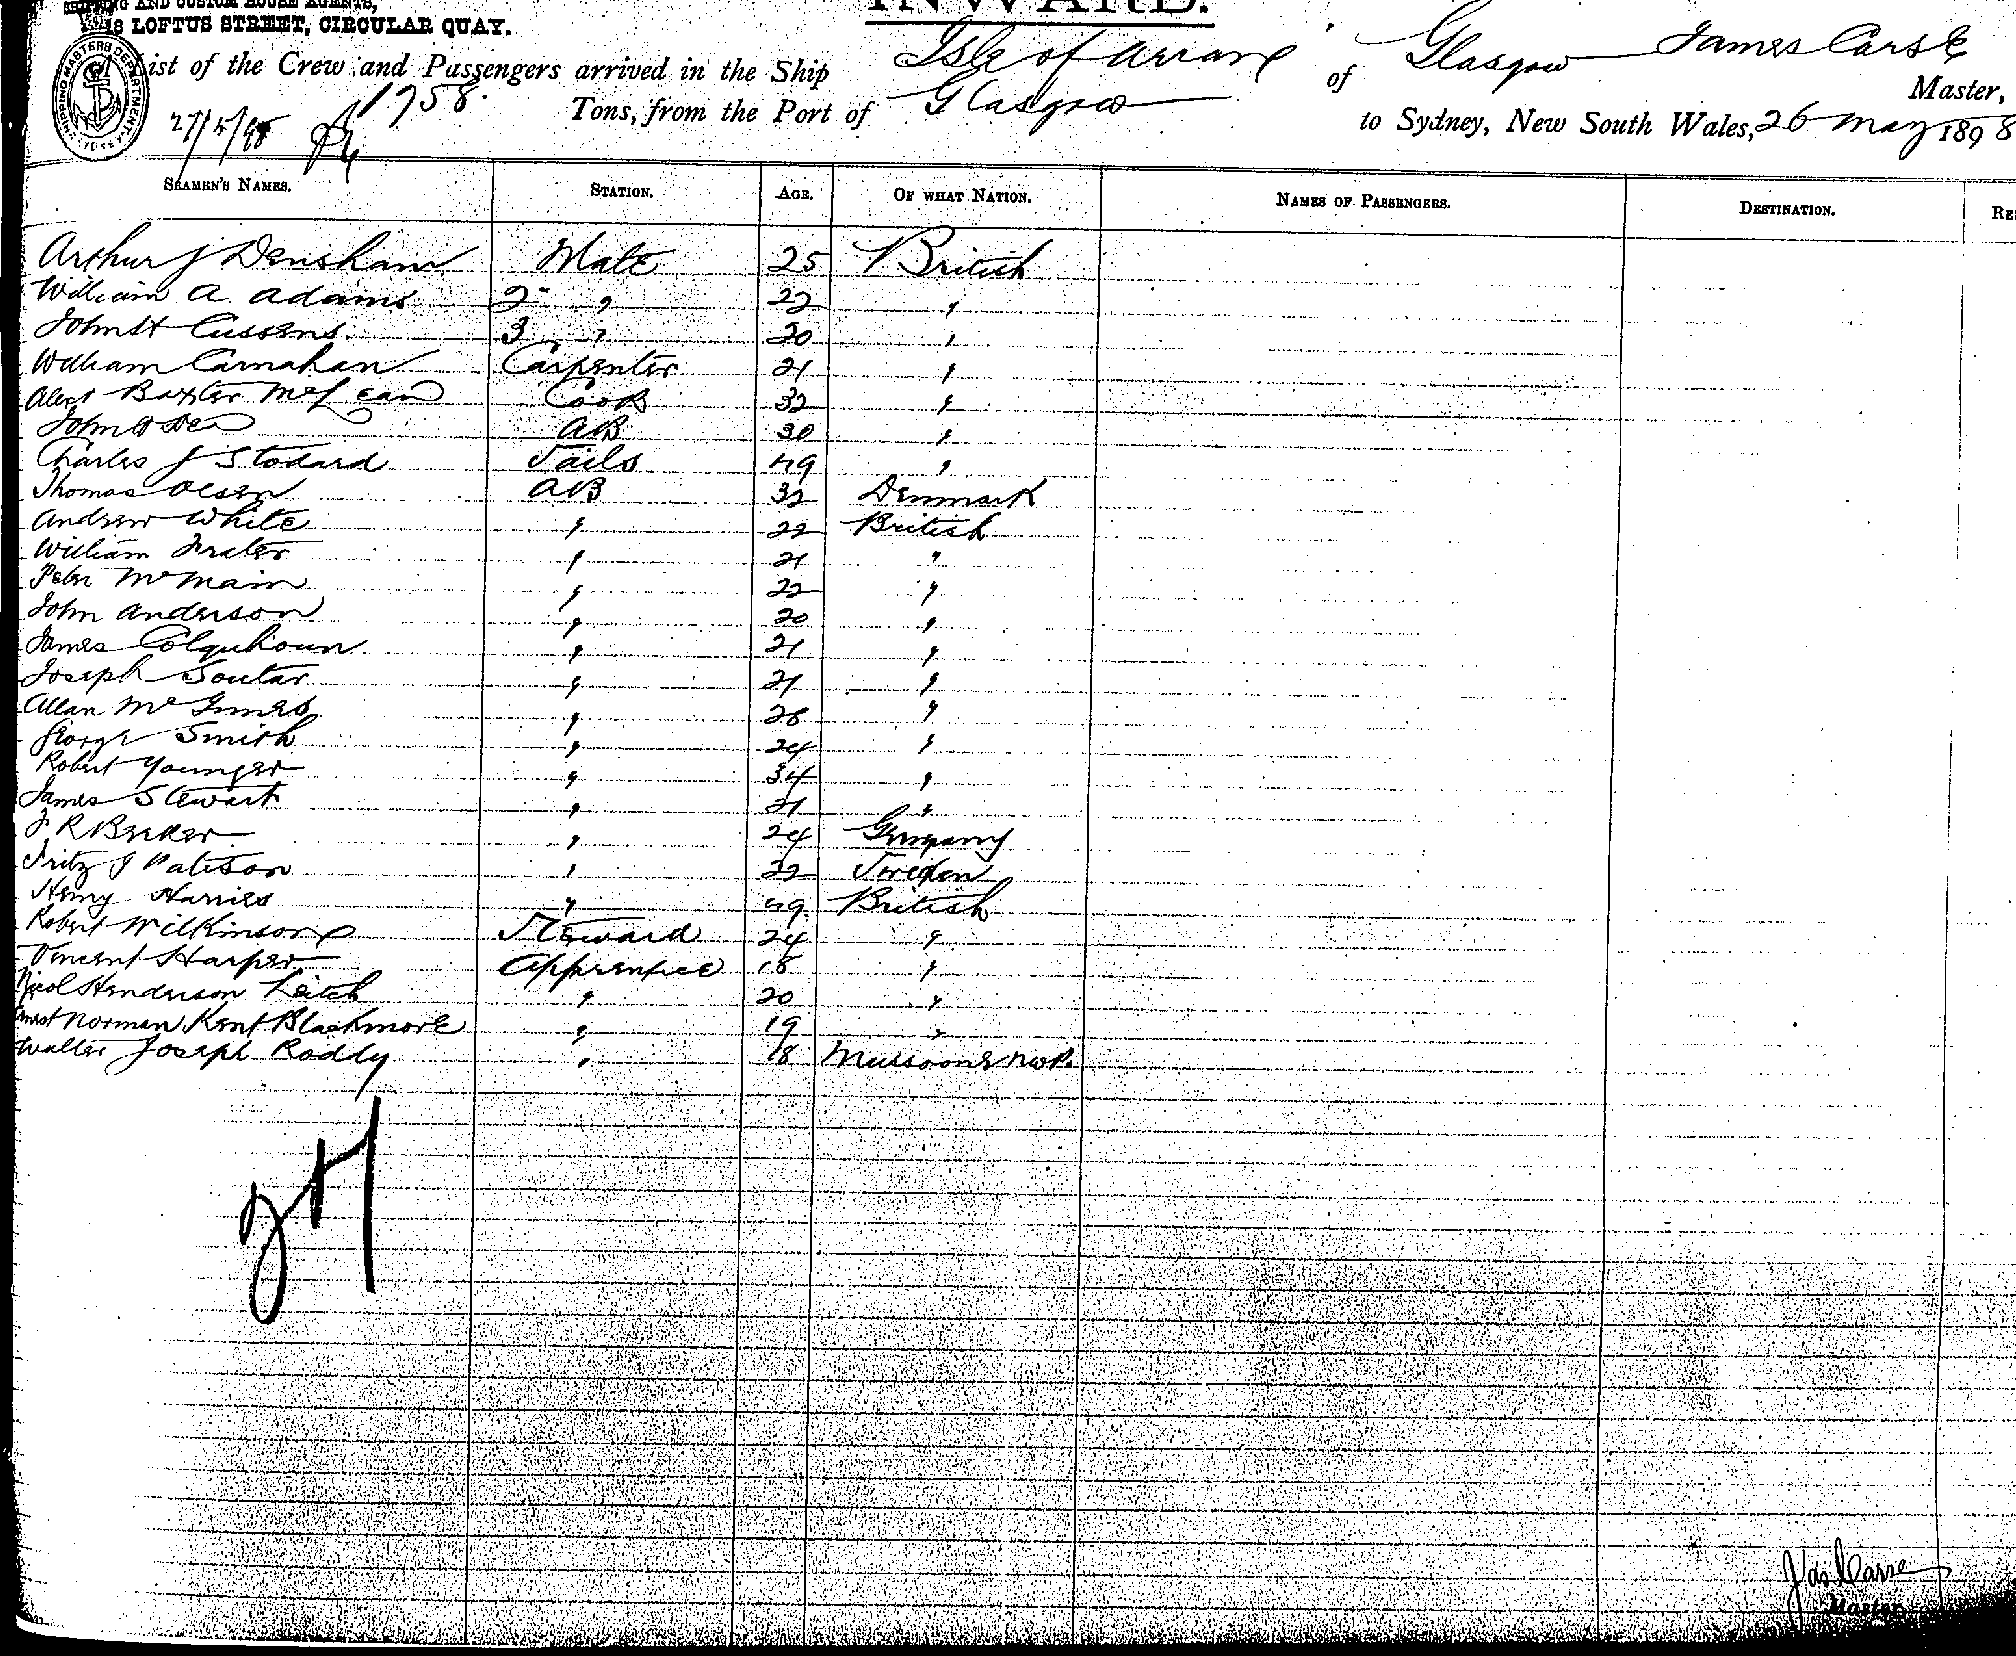 SHIPPING AND CUSTOM HOUSE AGENTS,
18 LOFTUS STREET, CIRCULAR QUAY.
INWARD.
SHIPPING MASTERS DEPARTMENT
List of the Crew and Passengers arrived in the Ship Isle of Arran of Glasgow James Carse Master,
1758 Tons, from the Port of Glasgow to Sydney, New South Wales, 26 May 1898
27/5/98
SEAMEN'S NAMES. STATION. AGE. OF WHAT NATION. NAMES OF PASSENGERS. DESTINATION.
Arthur J Densham Mate 25 British
William A. Adams 2 " 22 "
John H Cussens 3 " 20 "
William Carnahan Carpenter 21 "
Alext Baxter McLean Cook 32 "
John AB 30 "
Charles J Stodard Sails 49 "
Thomas Olsen AB 32 Denmark
Andrew White " 22 British
William Frater " 21 "
Peter McMain " 22 "
John Anderson " 20 "
James Colquhoun " 21 "
Joseph Soutar " 21 "
Allan McGinnes " 26 "
George Smith " 24 "
Robert Younger " 34 "
James Stewart " 21 "
J. R Beeker " 24 Germany
Fritz J Patison " 22 Sweden
Henry Harries " 49 British
Robert Wilkinson Steward 24 "
Vincent Harper Apprentice 18 "
Nicol Henderson Leitch " 20 "
Norman Kent Blackmore " 19 "
Walter Joseph Roddy " 18 Mussoorie NWP.
Jas Carse
Master